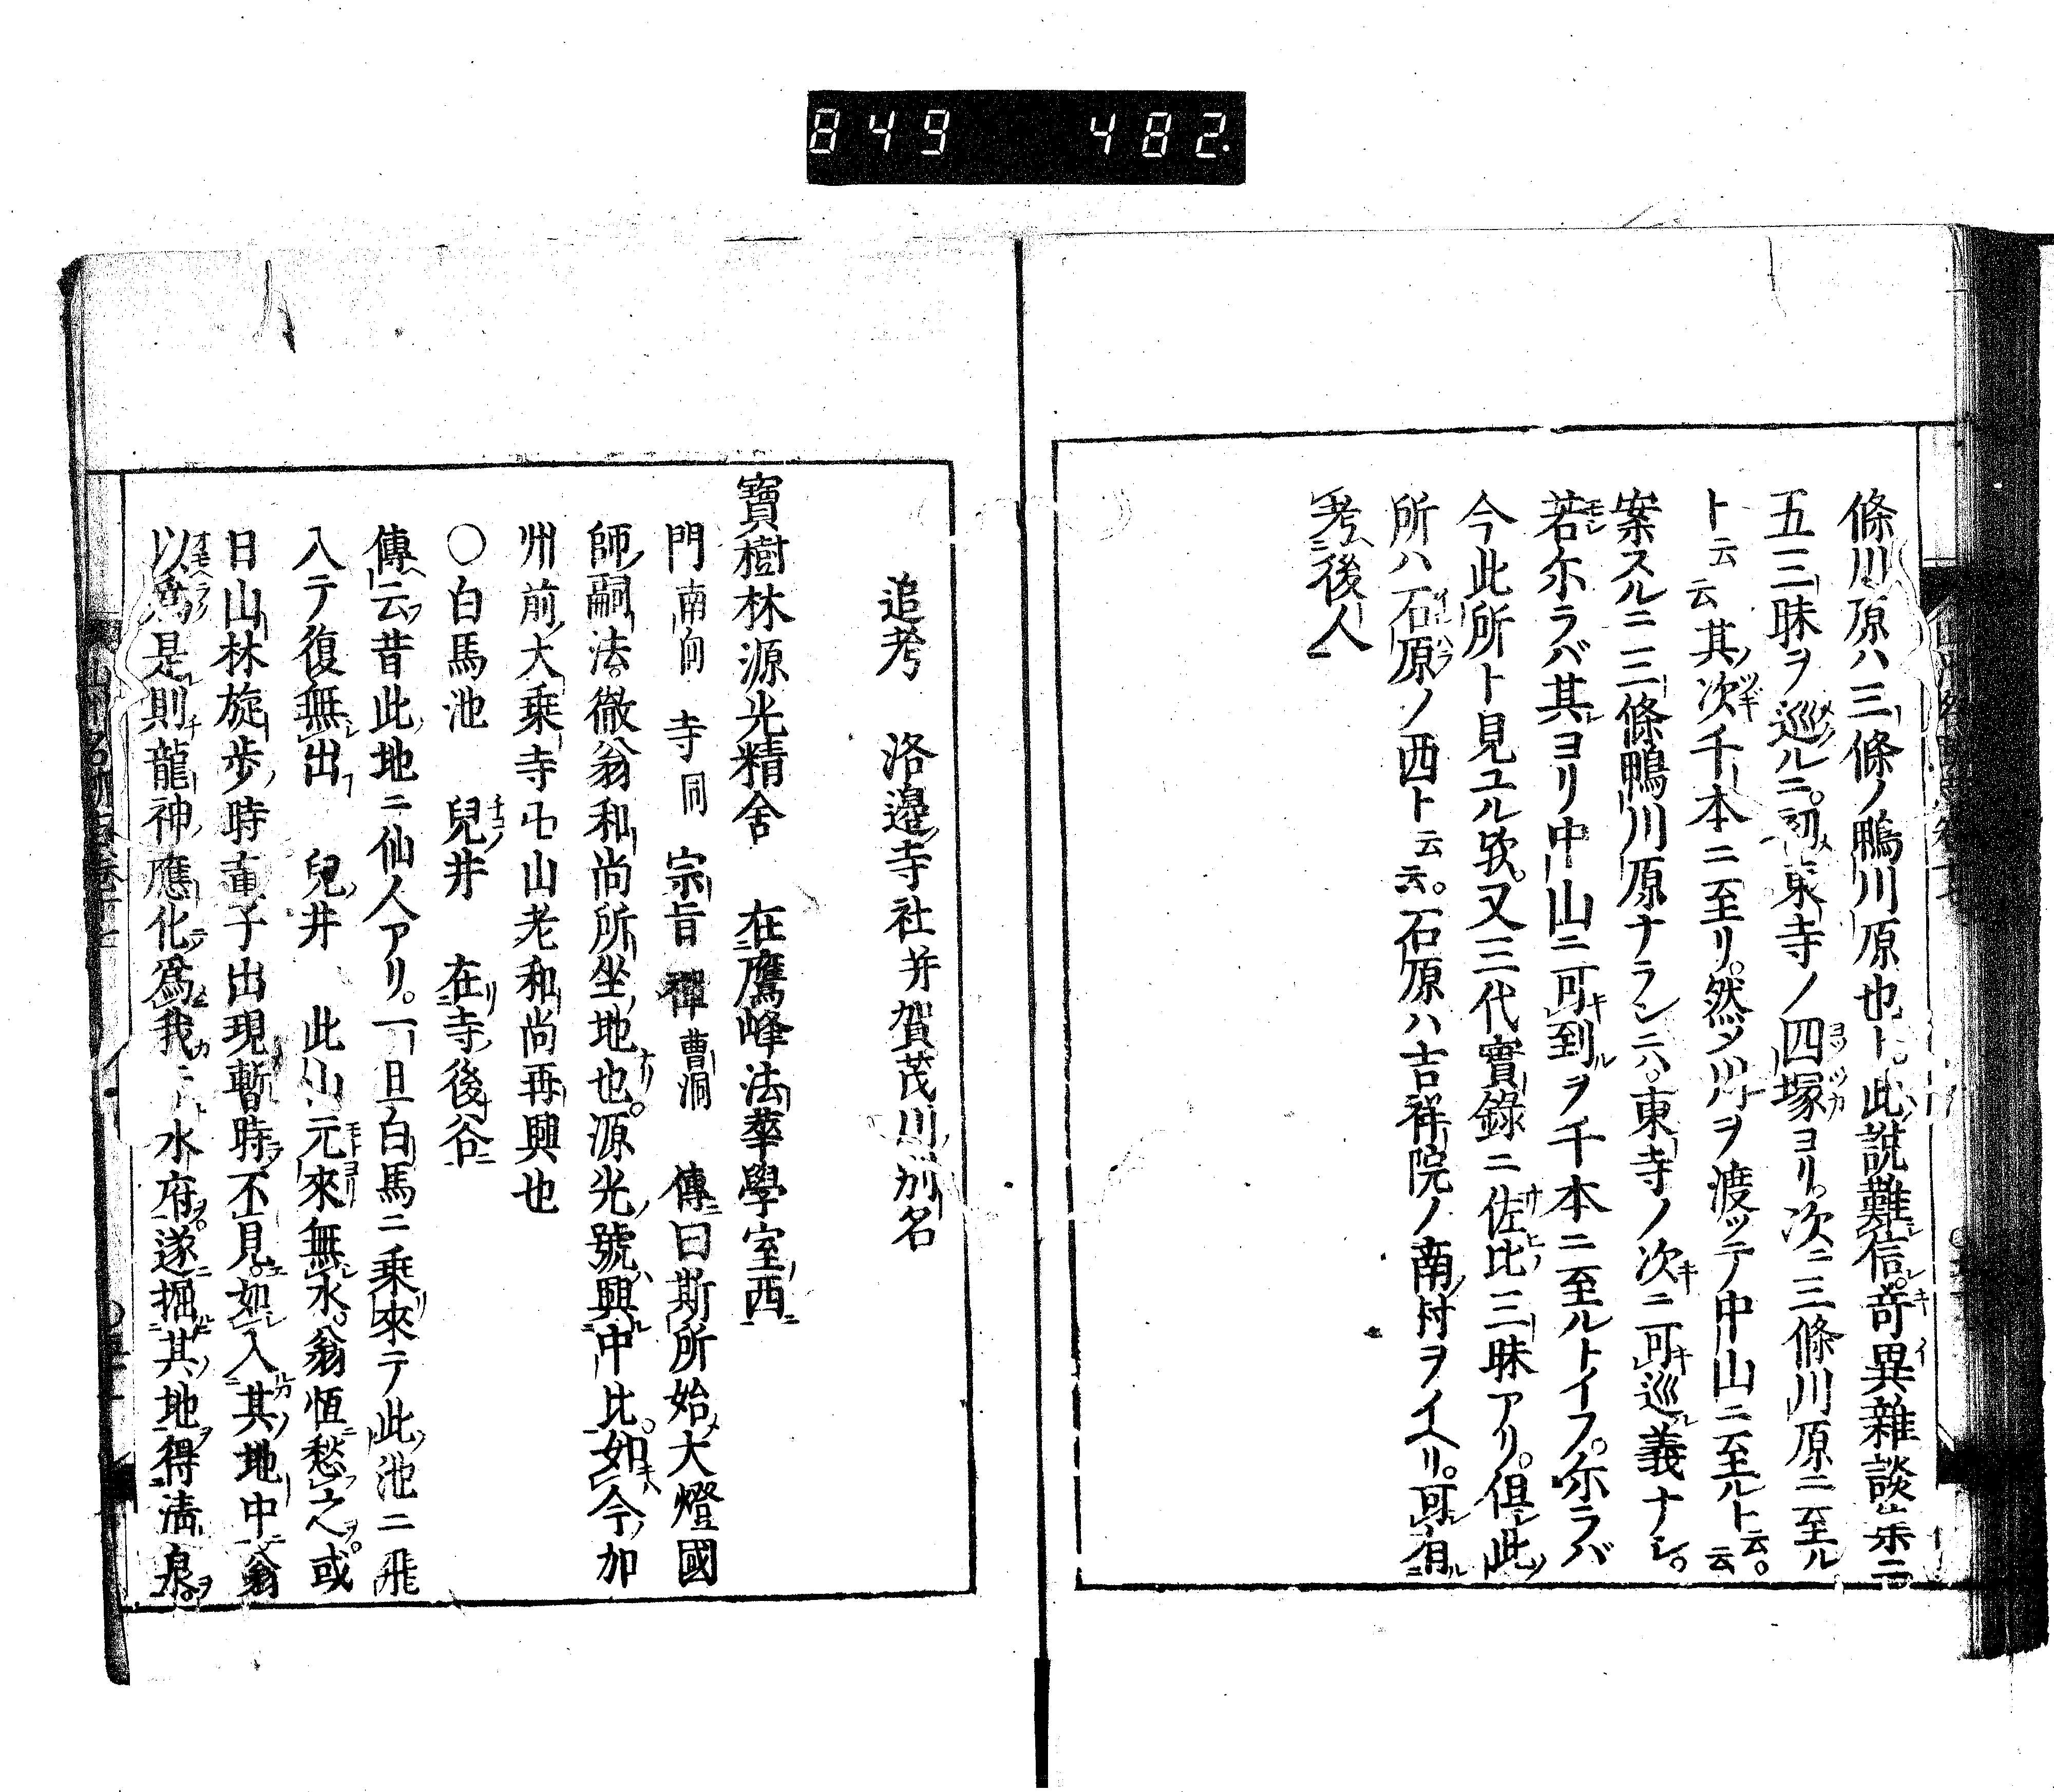 849 482.
條川原ハ三條ノ鴨川原也ト。此説難信。奇異雜談ニ
五三昧ヲ巡ルニ。初東寺ノ四塚ヨリ。次ニ三條川原ニ至ル
ト云云其次千本ニ至リ。然メ川ヲ渡ッテ中山ニ至ルト云云。
案スルニ三條鴨川原ナランニハ。東寺ノ次ニ可巡義ナシ。
若尓ラバ其ヨリ中山ニ可到ヲ千本ニ至ルトイフ。尓ラバ
今此所ト見ユル欤。又三代實錄ニ佐比三昧アリ。但此
所ハ石原ノ西ト云云。石原ハ吉祥院ノ南村ヲイヘリ。可有
考後人
追考 洛邊寺社并賀茂川別名
寶樹林源光精舍 在鷹峰法華學室西
門南向 寺同 宗旨禪曹洞 傳曰斯所始大燈國
師嗣法。徹翁和尚所坐地也。源光號興中比。如今加
州前大乗寺卍山老和尚再興也
〇白馬池 兒井 在寺後谷
傳云昔此地ニ仙人アリ。一旦白馬ニ乗來テ此池ニ飛
入テ復無出 兒井 此山元來無水。翁恒愁之。或
日山林旋歩時童子出現暫時不見。如入其地中翁
以爲是則龍神應化爲我 水府。遂掘其地得清泉。